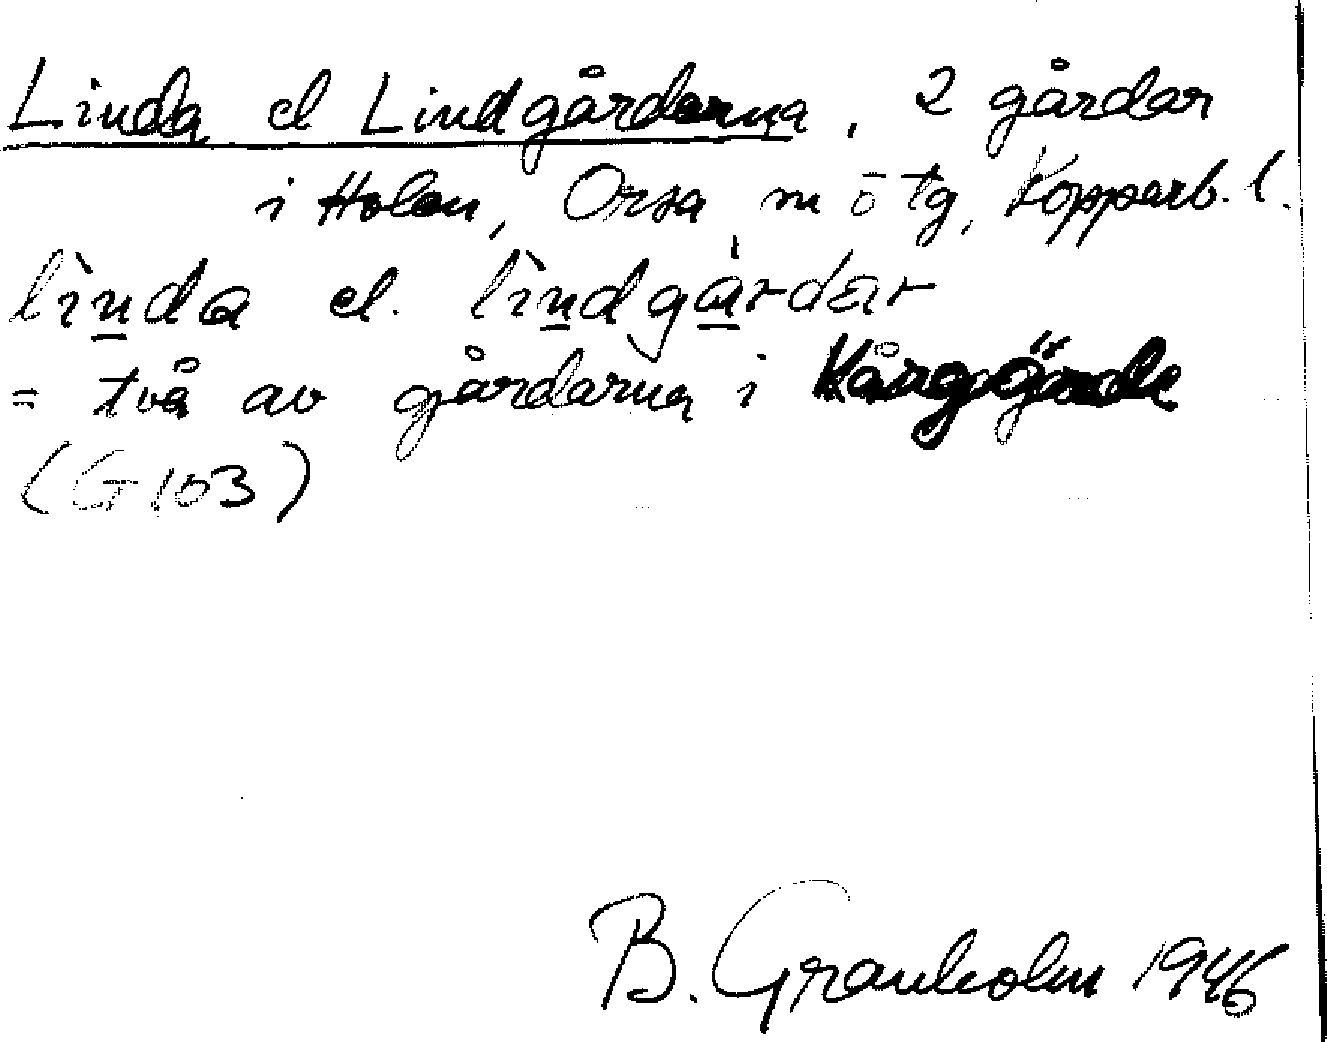 Linda el Lindgårdarna, 2 gårdar
i Holen, Orsa sn ö tg, Kopparb. l.
lìnda el. lìndgárdar
= två av gårdarna i
(G 103)
B. Granholm 1946